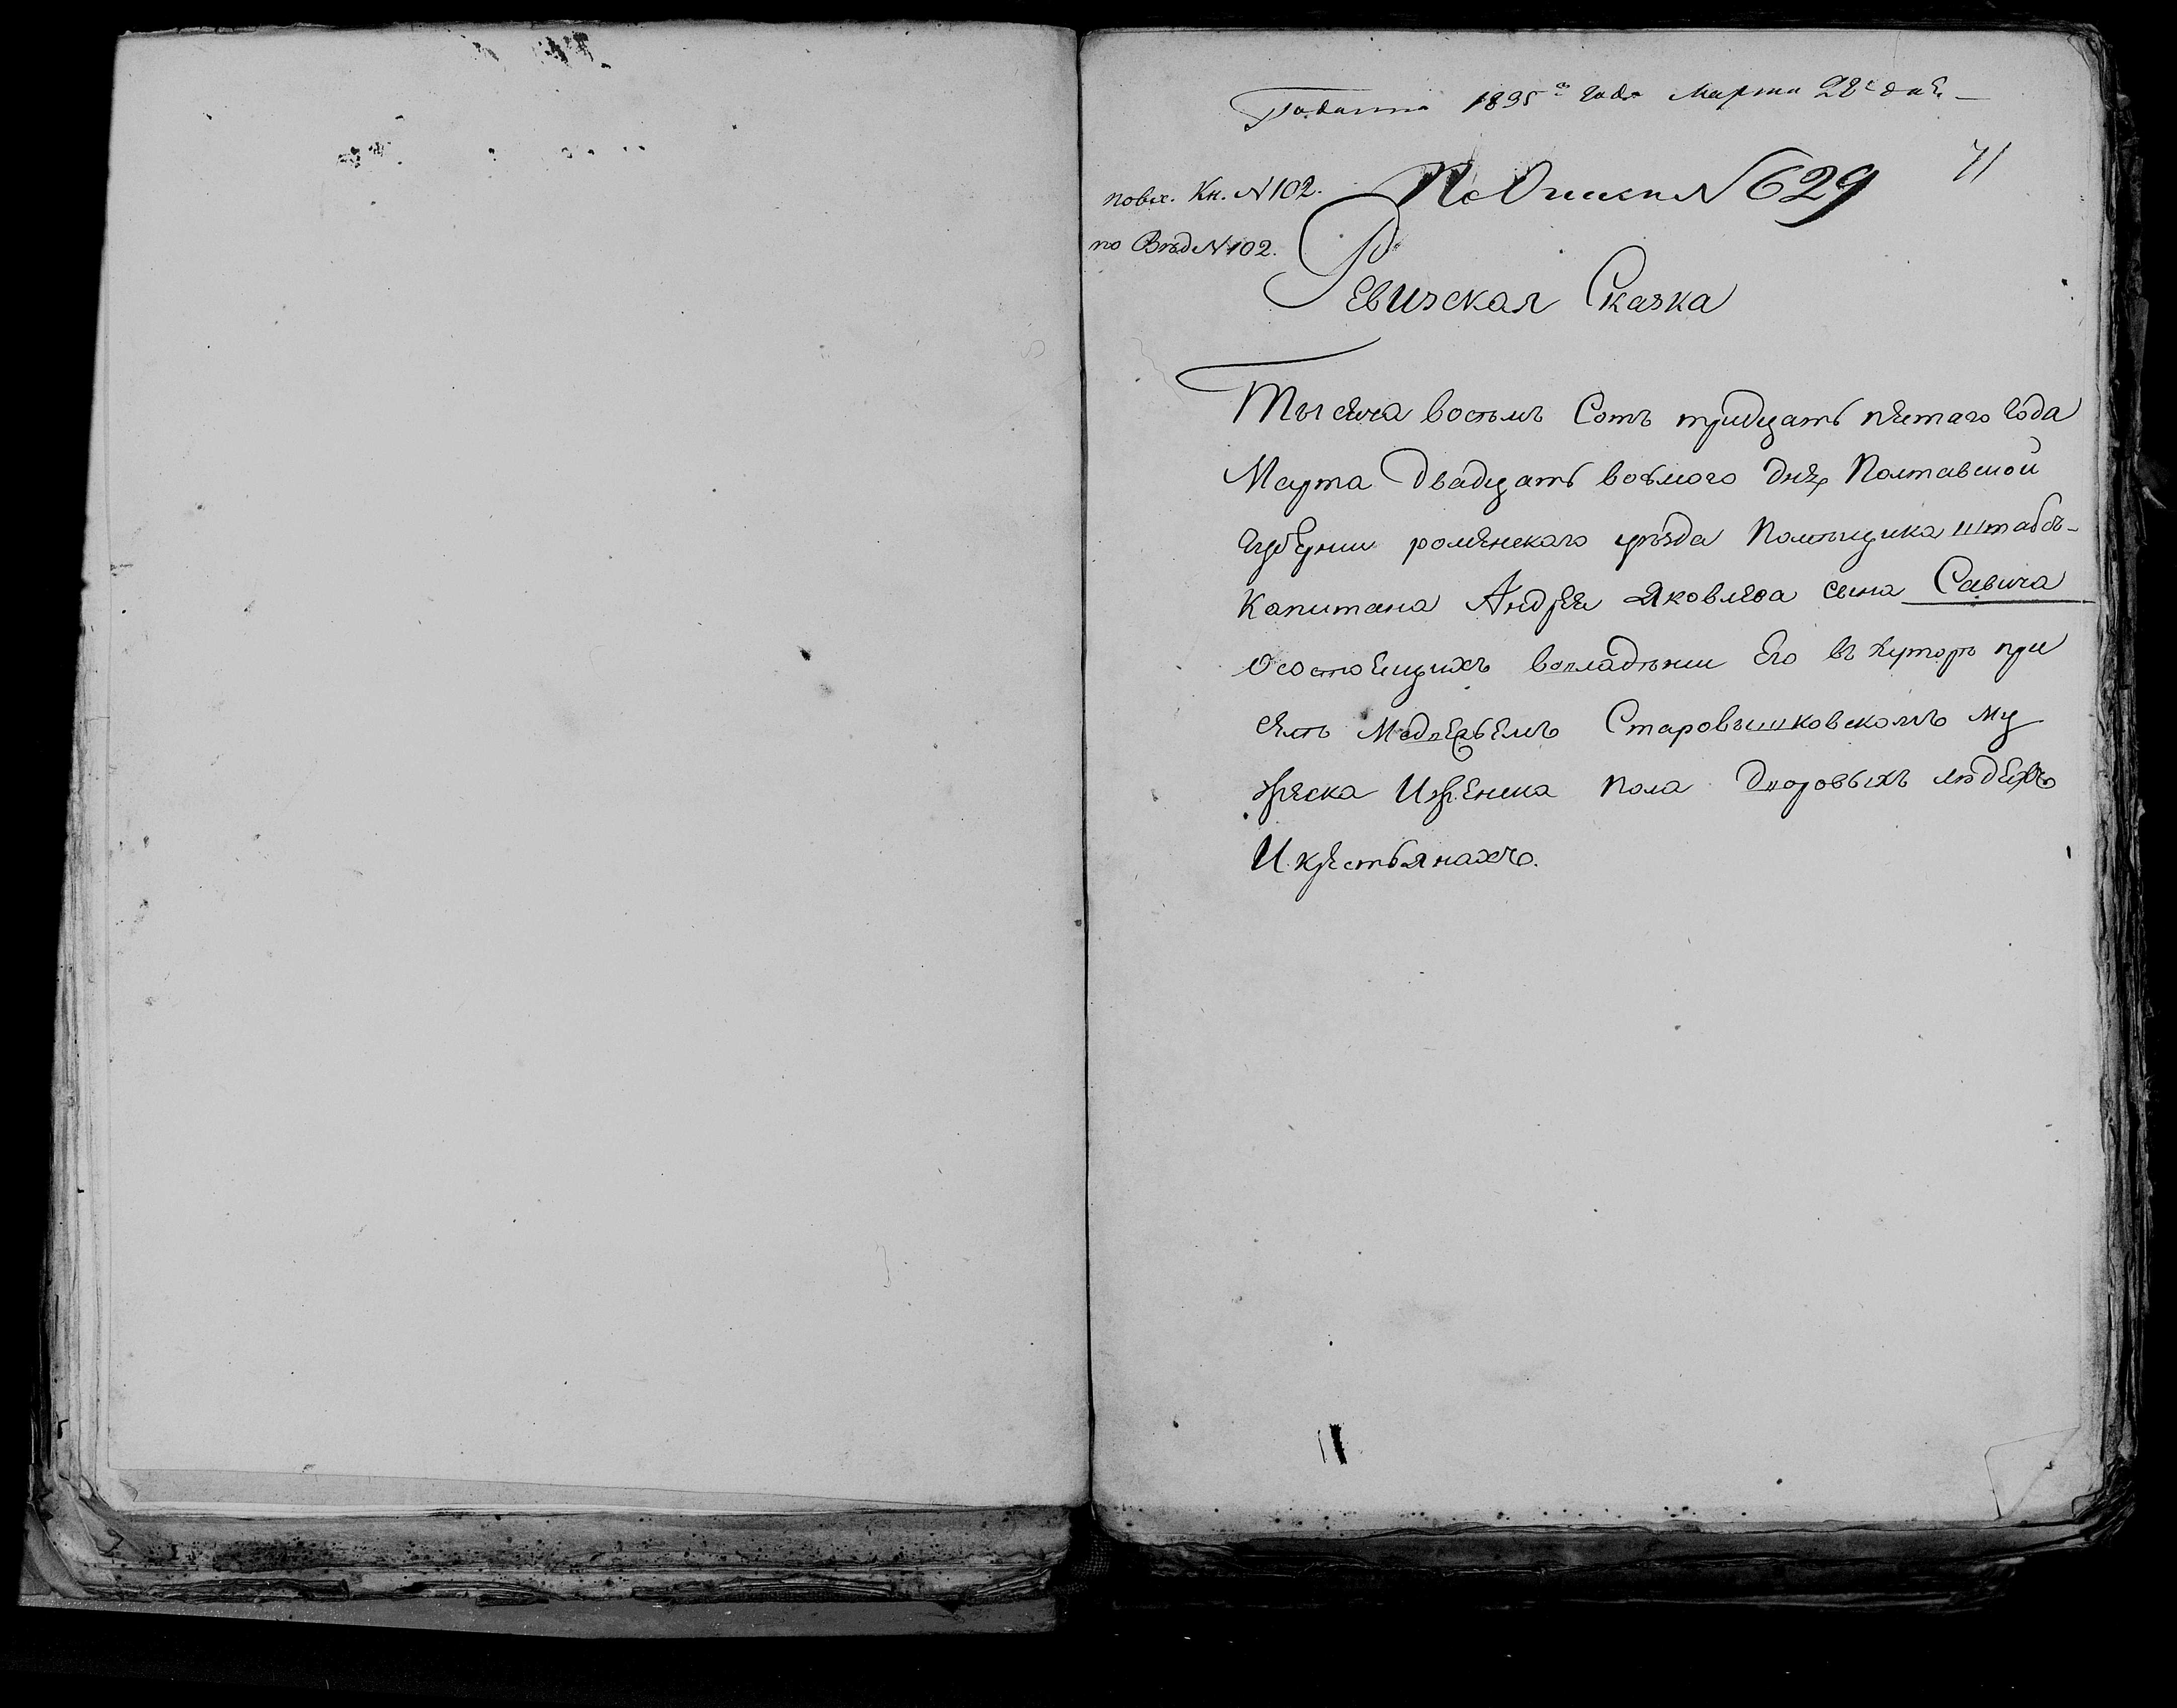 Подана 1835го года Марта 28го дня
71
Повх. Кн. N 102.
По Описи N 629
по Вѣд N 102.
Ревизская Сказка
Тысяча восѣмъ Сотъ тридцать пятаго года
Марта двадцать восьмого дня Полтавской
губернии роменского уѣзда Помѣщика штабсъ-
Капитана Андрея Яковлева сына Савича
осостоящихъ вовладѣнии Его въ хуторѣ при
селѣ Старовышковскомъ му
жеска Иженска пола дворовыхъ людехъ
И крестьянахъ.